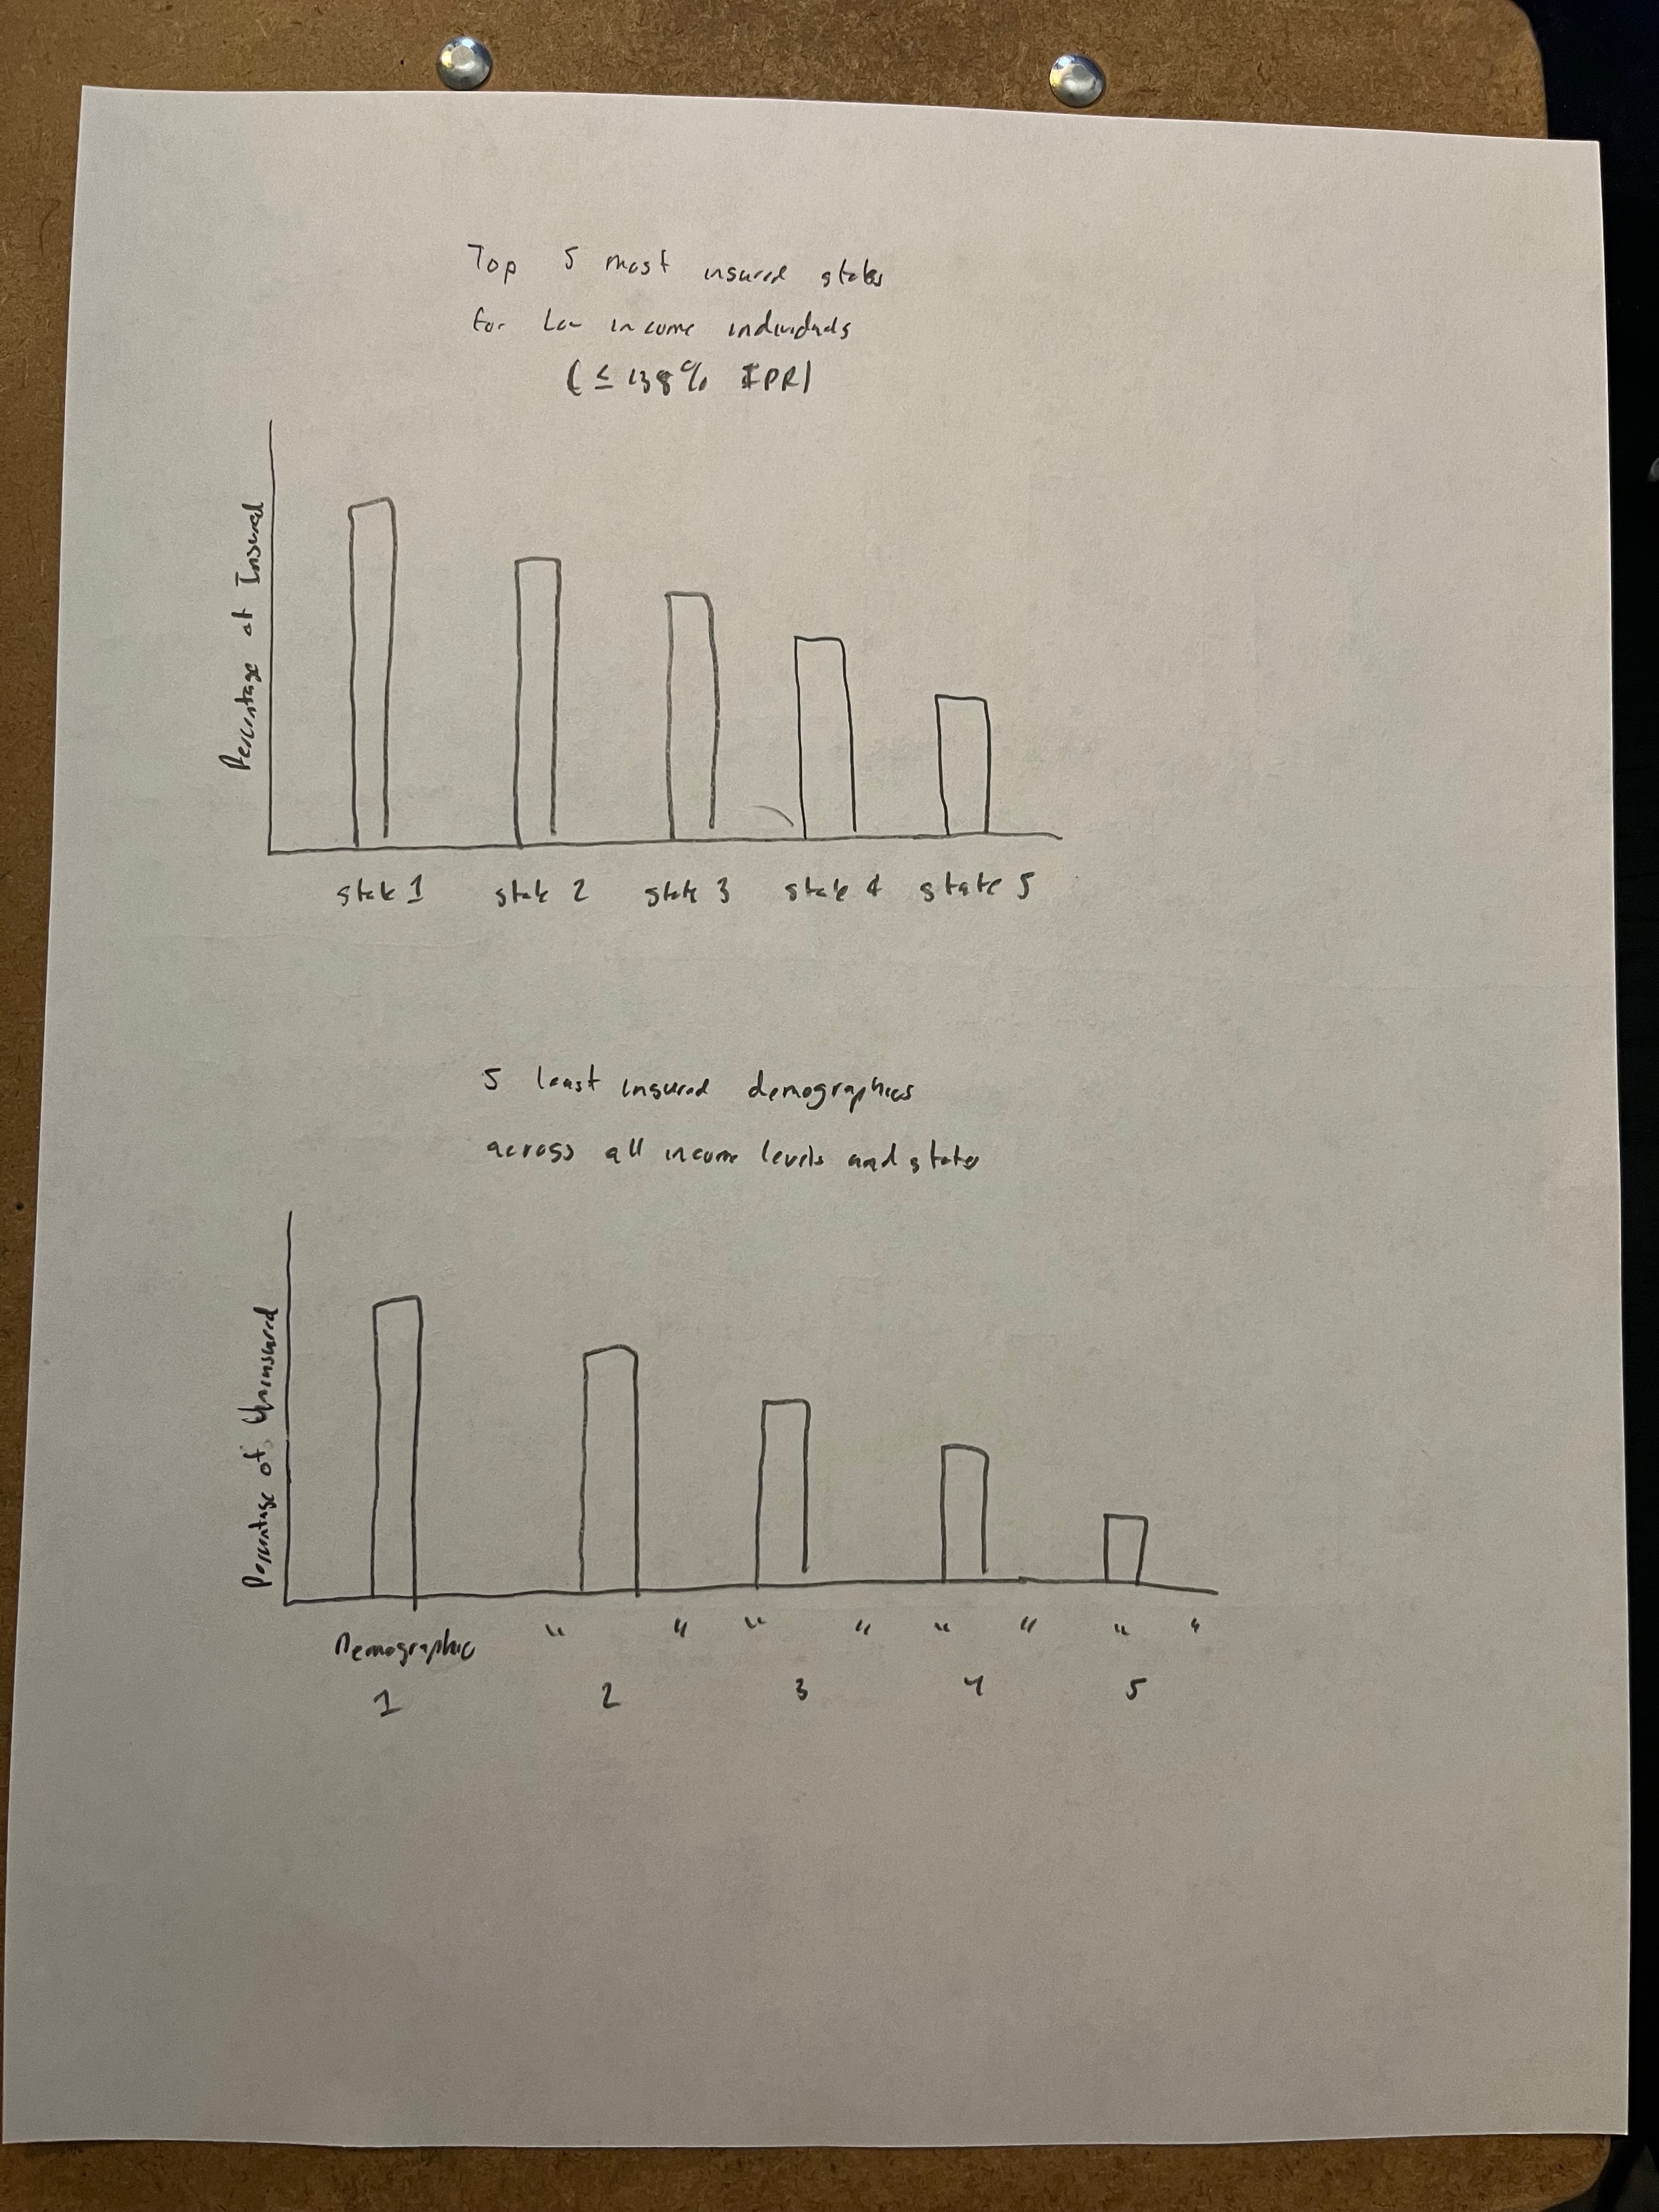 Top 5 most insured states
for low income individuals
(≤ 138% IPR)
Percentage of Insured
state 1 state 2 state 3 state 4 state 5
5 least insured demographics
across all income levels and states
Percentage of Uninsured
Demographic " " " " " " " "
1 2 3 4 5